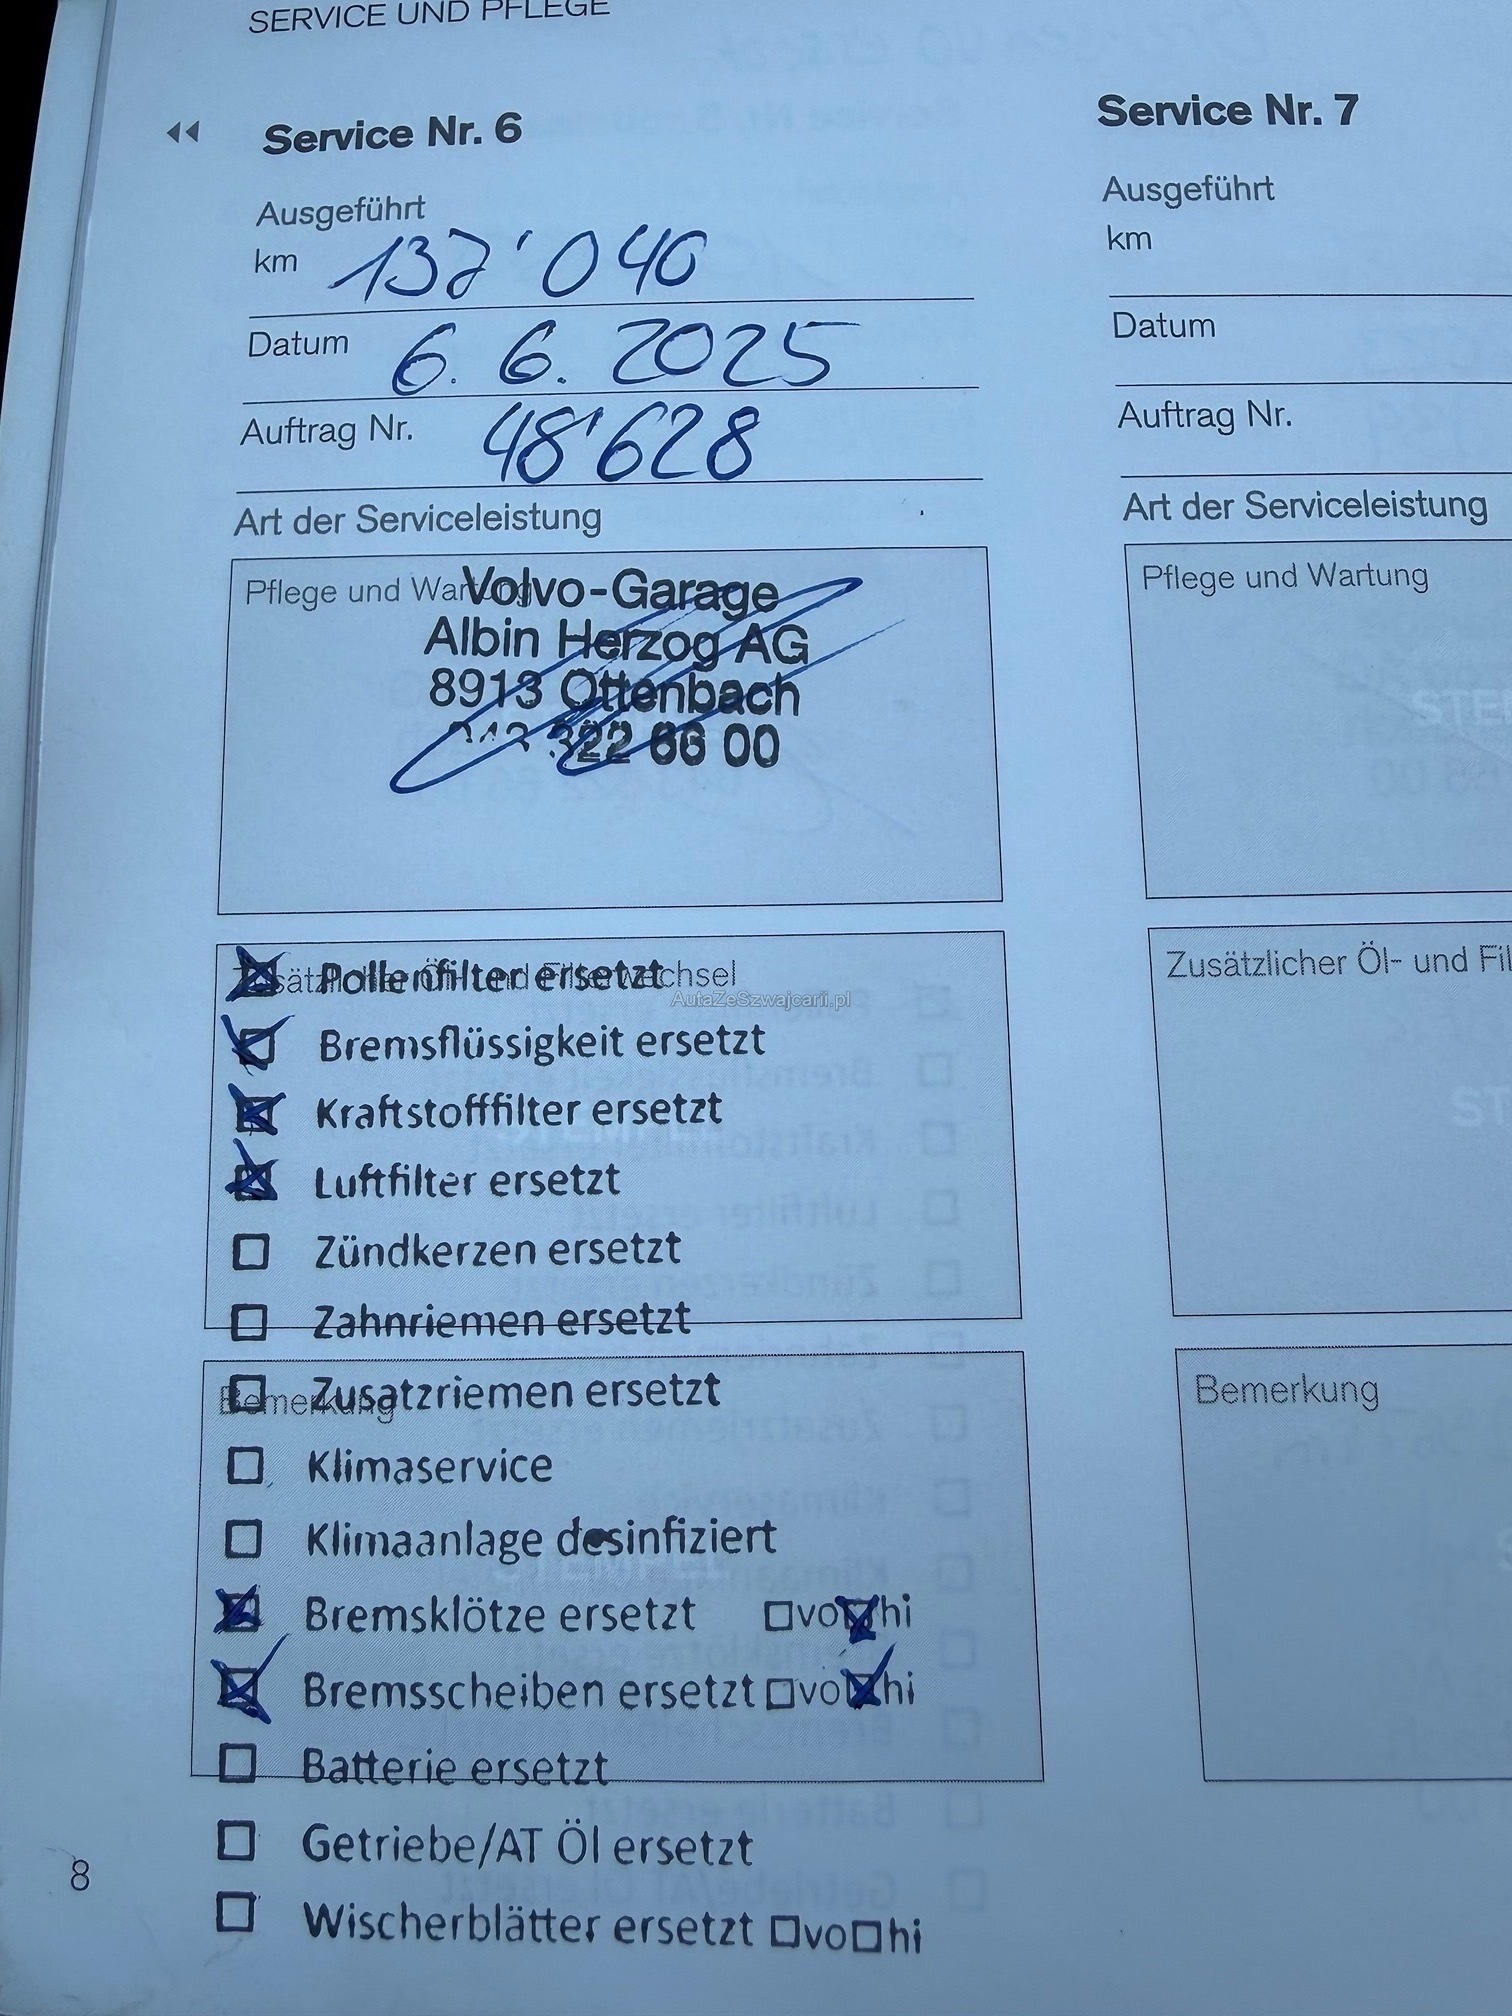 SERVICE UND PFLEGE
Service Nr. 6
Ausgeführt
km 132'040
Datum 6. 6. 2025
Auftrag Nr. 48'628
Art der Serviceleistung
Pflege und Wartung
Volvo-Garage
Albin Herzog AG
8913 Ottenbach
043 322 66 00
Zusätzlicher Öl- und Filterwechsel
Pollenfilter ersetzt
AutaZeSzwajcarii.pl
Bremsflüssigkeit ersetzt
Kraftstofffilter ersetzt
Luftfilter ersetzt
Zündkerzen ersetzt
Zahnriemen ersetzt
Bemerkung
Zusatzriemen ersetzt
Klimaservice
Klimaanlage desinfiziert
STEMPEL
Bremsklötze ersetzt vo hi
Bremsscheiben ersetzt vo hi
Batterie ersetzt
Getriebe/AT Öl ersetzt
Wischerblätter ersetzt vo hi
8
Service Nr. 7
Ausgeführt
km
Datum
Auftrag Nr.
Art der Serviceleistung
Pflege und Wartung
STE
Zusätzlicher Öl- und Fil
ST
Bemerkung
S